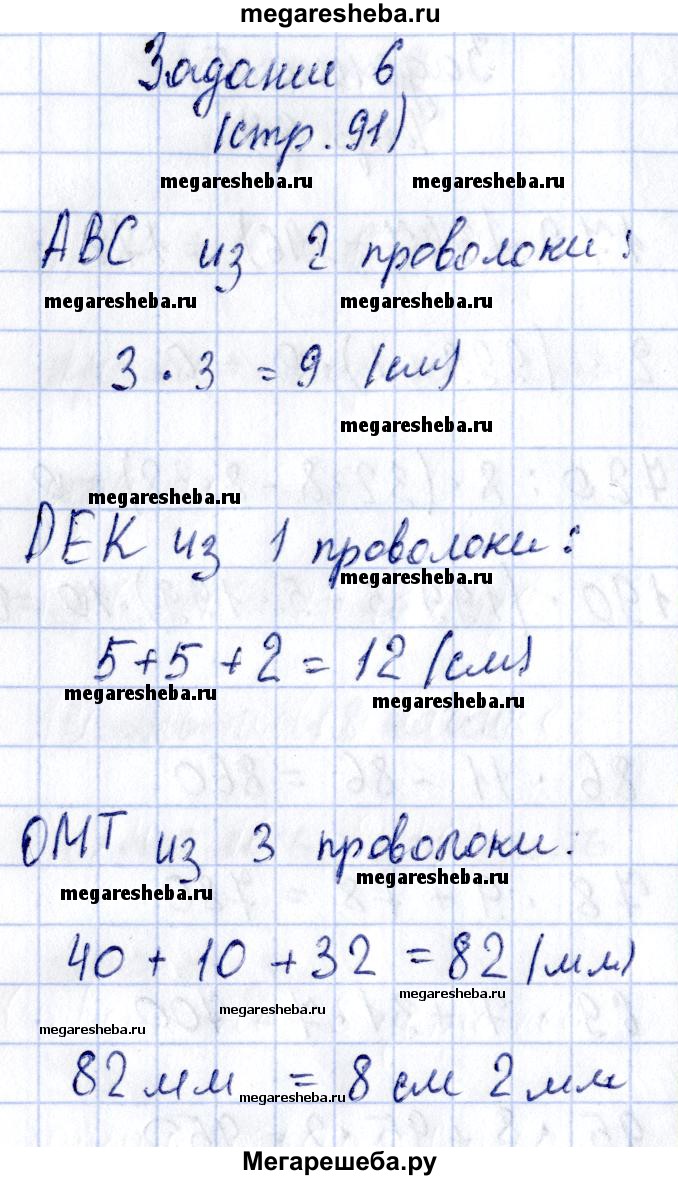 megaresheba.ru
Задание 6
(стр. 91)
megaresheba.ru megaresheba.ru
ABC из 2 проволоки:
megaresheba.ru megaresheba.ru
3 · 3 = 9 (см)
megaresheba.ru
megaresheba.ru
DEK из 1 проволоки:
megaresheba.ru
5 + 5 + 2 = 12 (см)
megaresheba.ru megaresheba.ru
OMT из 3 проволоки:
megaresheba.ru megaresheba.ru
40 + 10 + 32 = 82 (мм)
megaresheba.ru megaresheba.ru megaresheba.ru
82 мм = 8 см 2 мм
megaresheba.ru megaresheba.ru
Мегарешеба.ру